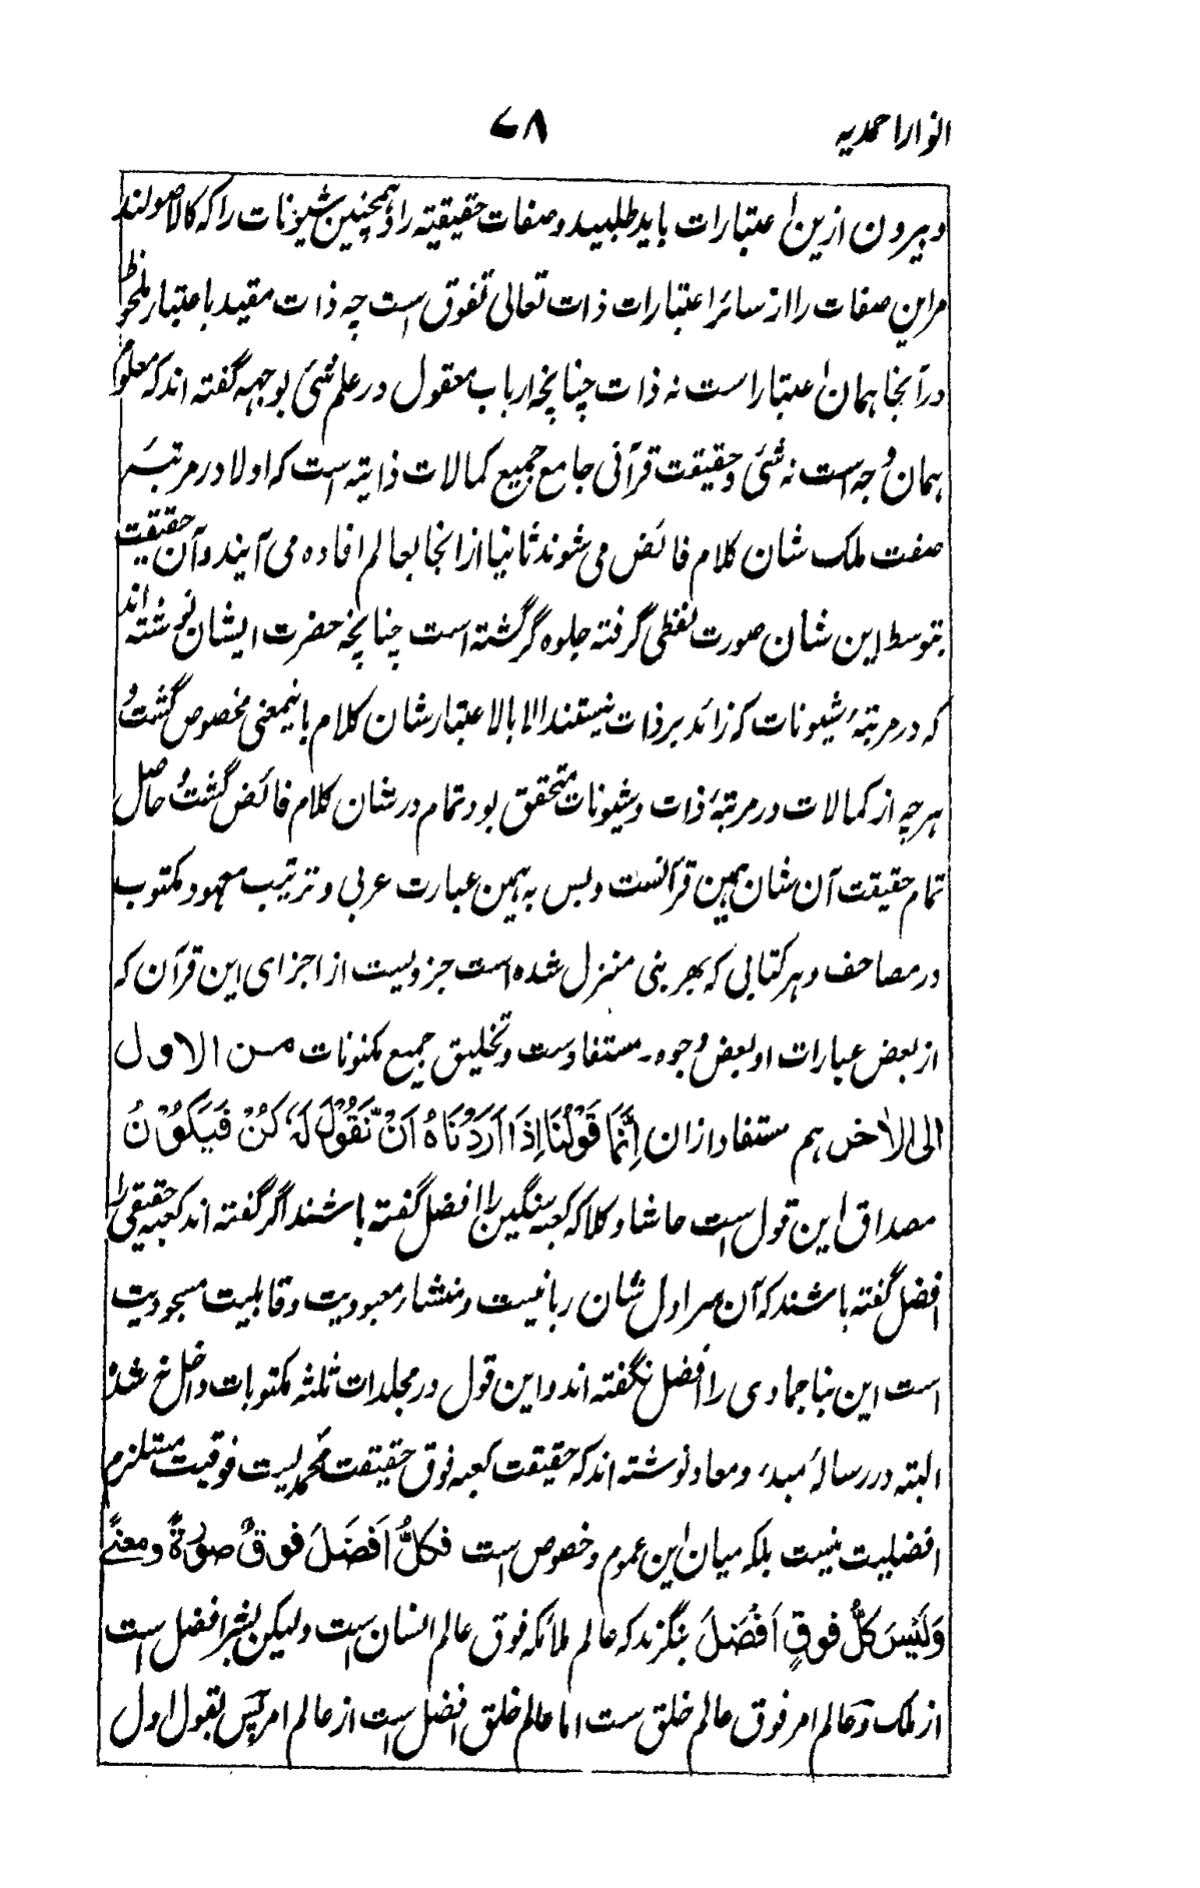 انوار احمدیه
۷۸
و بیرون ازین اعتبارات باید طلبید و صفات حقیقیته را و همچنین شیونات را که کالاصولند
مر این صفات را از سائر اعتبارات ذات تعالی تفوق است چه ذات مقید باعتبار ملحوظ
در آنجا همان اعتبار است نه ذات چنانچه ارباب معقول در علم شئ بوجهه گفته اند که معلوم
همان وجه است نه شئ و حقیقت قرآنی جامع جمیع کمالات ذاتیه است که اولا در مرتبهٔ
صفت ملک شان کلام فائض می شوند ثانیا از انجا بعالم افاده می آیند و آن حقیقیت
بتوسط این شان صورت لفظی گرفته جلوه گر گشته است چنانچه حضرت ایشان نوشته اند
که در مرتبهٔ شیونات که زائد بر ذات نیستند الا بالاعتبار شان کلام باینمعنی مخصوص گشت و
هر چه از کمالات در مرتبهٔ ذات و شیونات متحقق بود تمام در شان کلام فائض گشت و حاصل
تمام حقیقت آن شان همین قرآنست و بس به همین عبارت عربی و ترتیب معهود مکتوب
در مصاحف و هر کتابی که بهر نبی منزل شده است جزویست از اجزای این قرآن که
از بعض عبارات او بعض وجوه۔ مستفادست و تخلیق جمیع مکنونات من الاول
الی الاخر هم مستفاد از ان اِنَّمَا قَوْلُنَا اِذَا اَرَدْنَاهُ اَنْ نَّقُوْلَ لَهٗ کُنْ فَیَکُوْنُ
مصداق این قول است حاشا و کلا که کعبهٔ سنگین را افضل گفته باشند اگر گفته اند کعبهٔ حقیقی را
افضل گفته باشند که آن سر اول شان ربانیست و منشار معبودیت و قابلیت مسجودیت
است این بنا جمادی را افضل نگفته اند و این قول در مجلدات ثلثه مکتوبات واضل خ شد
البته در رسالهٔ مبدء و معاد نوشته اند که حقیقت کعبه فوق حقیقت محمدیست فوقیت مستلزم
افضلیت نیست بلکه میان این عموم و خصوص است فکلُّ اَفضَلَ فوقٌ صورةً و معنًے
وَلَیْسَ کلُّ فوقٍ اَفْضَلَ بنگرند که عالم ملائکه فوق عالم انسان است ولیکن بشر افضل است
از ملک و عالم امر فوق عالم خلق ست اما عالم خلق افضل است از عالم امر پس بقول اول